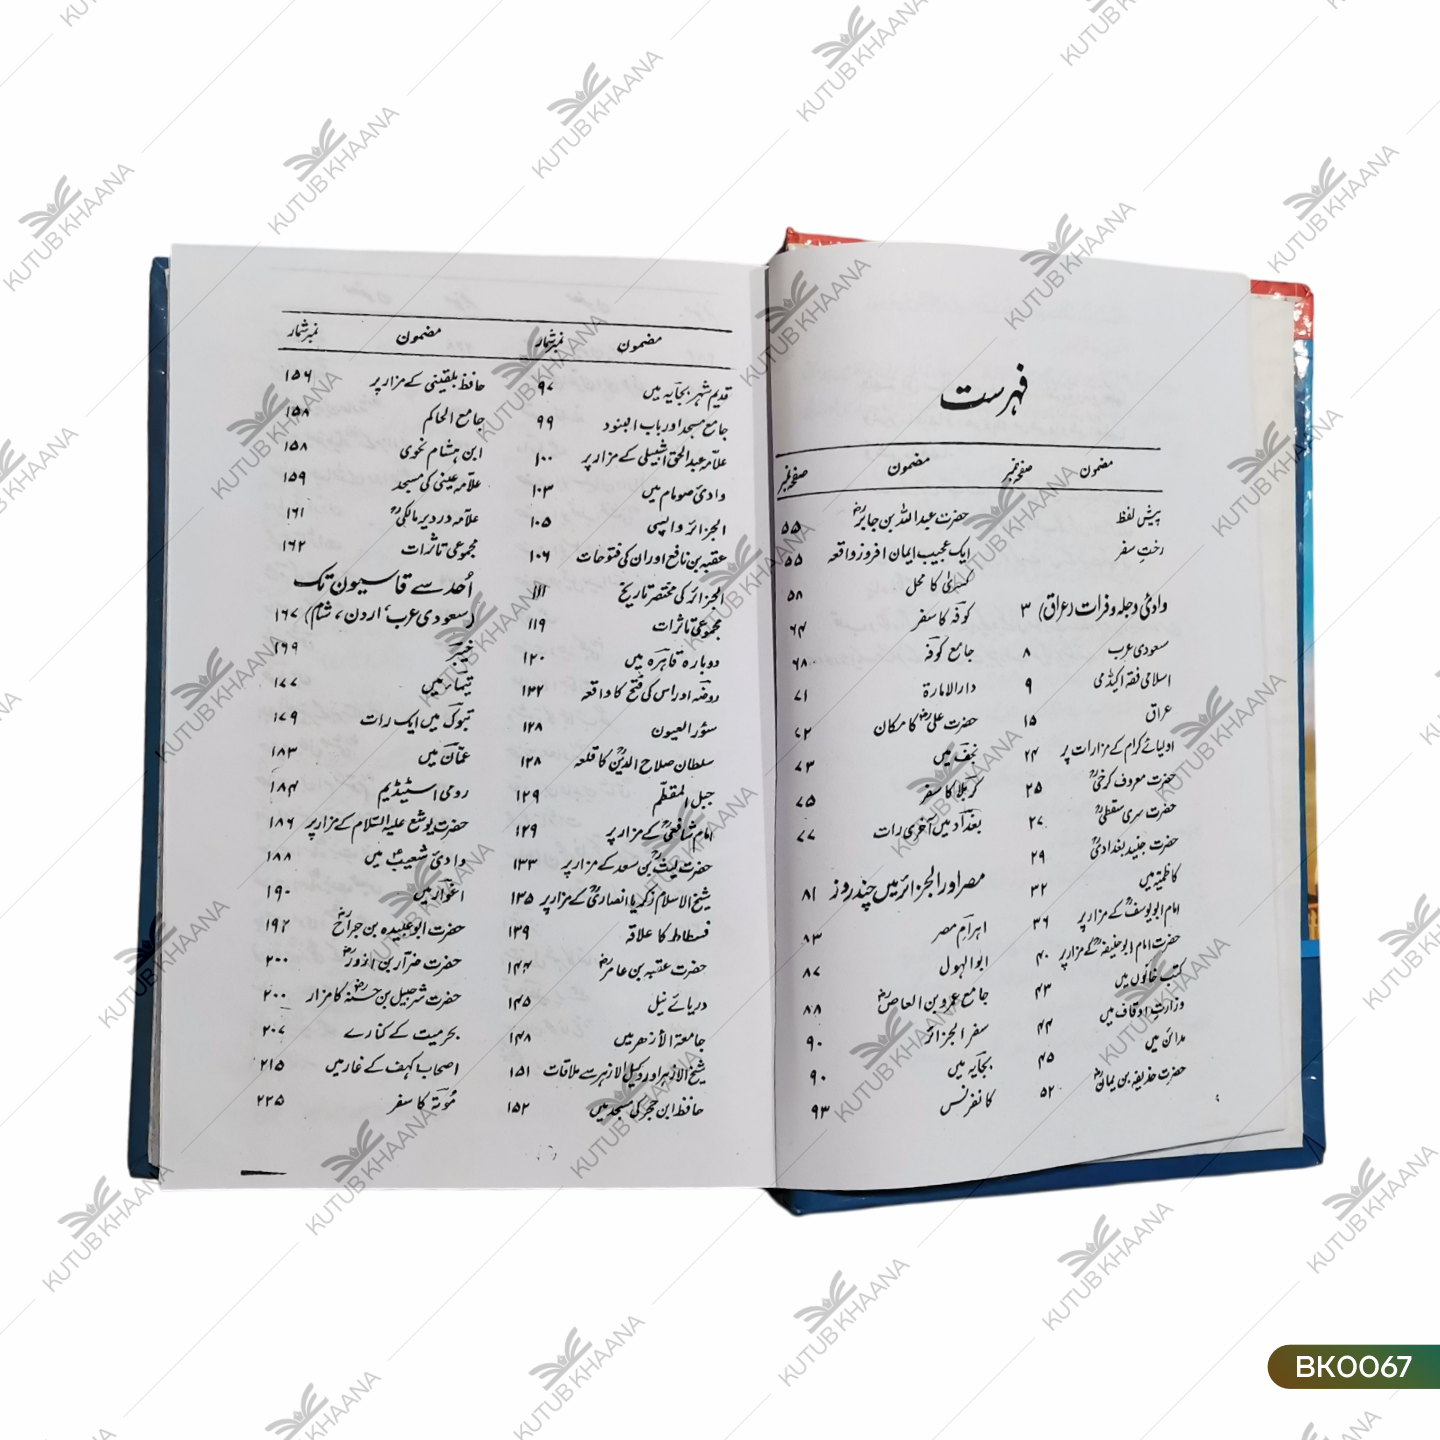 فہرست
مضمون صفحہ نمبر
پیش لفظ
رختِ سفر
وادیٔ دجلہ و فرات (عراق) ۳
سعودی عرب ۸
اسلامی فقہ اکیڈمی ۹
عراق ۱۵
اولیائے کرام کے مزارات پر ۲۴
حضرت معروف کرخیؒ ۲۵
حضرت سری سقطیؒ ۲۷
حضرت جنید بغدادیؒ ۲۹
کاظمیہ میں ۳۲
امام ابو یوسفؒ کے مزار پر ۳۶
حضرت امام ابو حنیفہؒ کے مزار پر ۴۰
کتب خانوں میں ۴۳
وزارتِ اوقاف میں ۴۴
مدائن میں ۴۵
حضرت حذیفہ بن یمانؓ ۵۲
مضمون صفحہ نمبر
حضرت عبداللہ بن جابرؓ ۵۵
ایک عجیب ایمان افروز واقعہ ۵۵
کسریٰ کا محل ۵۸
کوفہ کا سفر ۶۴
جامع کوفہ ۶۸
دارالامارۃ ۷۱
حضرت علیؓ کا مکان ۷۲
نجف میں ۷۳
کربلا کا سفر ۷۵
بغداد میں آخری رات ۷۷
مصر اور الجزائر میں چند روز ۸۱
اہرامِ مصر ۸۳
ابوالہول ۸۷
جامع عمرو بن العاصؓ ۸۸
سفر الجزائر ۹۰
بجایہ میں ۹۰
کانفرنس ۹۳
مضمون نمبر شمار
قدیم شہر بجایہ میں ۹۷
جامع مسجد اور باب البنود ۹۹
علامہ عبدالحق اشبیلی کے مزار پر ۱۰۰
وادیٔ صومام میں ۱۰۳
الجزائر واپسی ۱۰۵
عقبہ بن نافع اور ان کی فتوحات ۱۰۶
الجزائر کی مختصر تاریخ ۱۱۱
مجموعی تاثرات ۱۱۹
دوبارہ قاہرہ میں ۱۲۰
روضہ اور اس کی فتح کا واقعہ ۱۲۲
سور العیون ۱۲۸
سلطان صلاح الدینؒ کا قلعہ ۱۲۸
جبل المقطّم ۱۲۹
امام شافعیؒ کے مزار پر ۱۲۹
حضرت لیثؒ بن سعد کے مزار پر ۱۳۳
شیخ الاسلام زکریا انصاریؒ کے مزار پر ۱۳۵
فسطاط کا علاقہ ۱۳۹
حضرت عقبہ بن عامرؓ ۱۴۴
دریائے نیل ۱۴۵
جامعۃ الأزہر میں ۱۴۸
شیخ الازہر اور وکیل الازہر سے ملاقات ۱۵۱
حافظ ابن حجر کی مسجد میں ۱۵۲
مضمون نمبر شمار
حافظ بلقینی کے مزار پر ۱۵۶
جامع الحاکم ۱۵۸
ابن ہشام نحوی ۱۵۸
علامہ عینی کی مسجد ۱۵۹
علامہ دردیر مالکیؒ ۱۶۱
مجموعی تاثرات ۱۶۲
اُحد سے قاسیون تک
(سعودی عرب، اردن، شام) ۱۶۷
خیبر ۱۶۹
تیماء میں ۱۷۷
تبوک میں ایک رات ۱۷۹
عمّان میں ۱۸۳
رومی اسٹیڈیم ۱۸۴
حضرت یوشع علیہ السلام کے مزار پر ۱۸۶
وادیٔ شعیبؑ میں ۱۸۸
اغوار میں ۱۹۰
حضرت ابو عبیدہ بن جراحؓ ۱۹۲
حضرت ضرار بن ازورؓ ۲۰۰
حضرت شرجیل بن حسنہؓ کا مزار ۲۰۰
بحرِ میت کے کنارے ۲۰۷
اصحابِ کہف کے غار میں ۲۱۵
مُوتہ کا سفر ۲۲۵
KUTUB KHAANA
BK0067